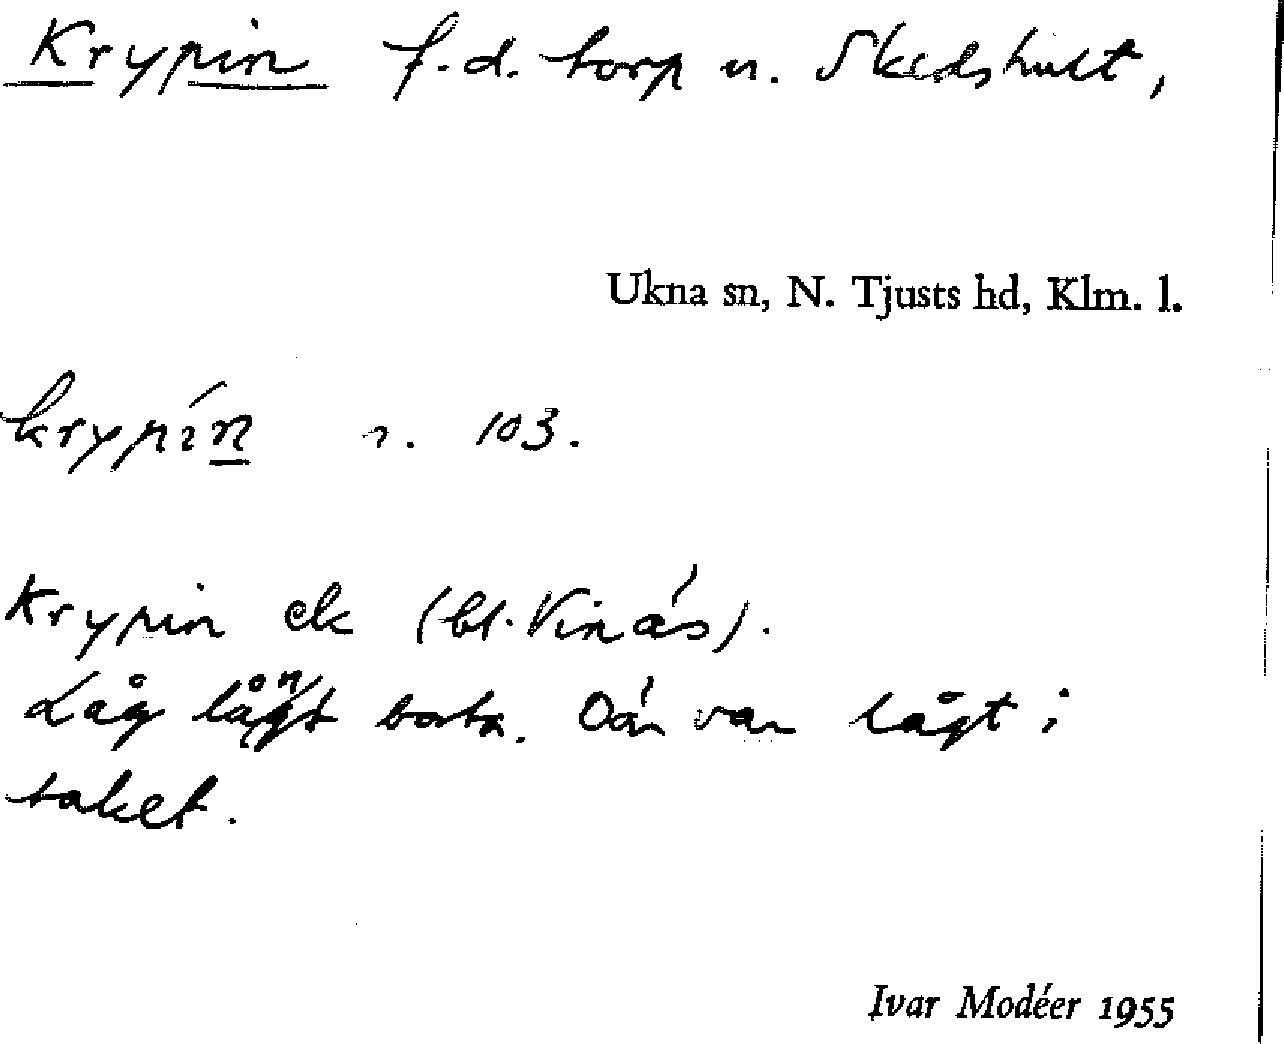 Krypin f.d. torp u. Skedshult,
Ukna sn, N. Tjusts hd, Klm. l.
krypín n. 103.
Krypin ek (bl. Vinäs).
Låg långt borta. Där var lågt i
taket.
Ivar Modéer 1955